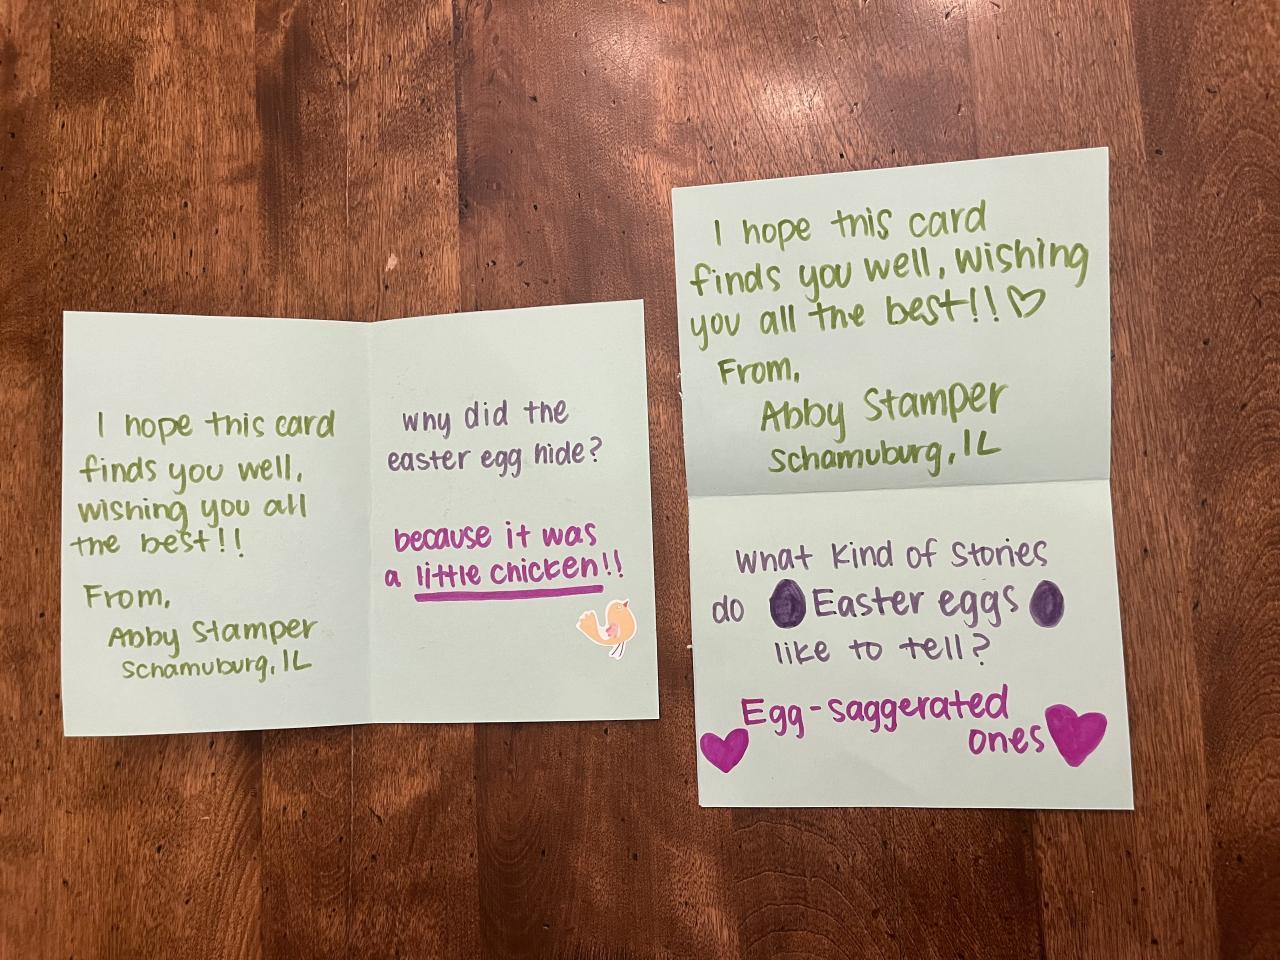 I hope this card
finds you well,
wishing you all
the best!!
From,
Abby Stamper
Schamuburg, IL
why did the
easter egg hide?
because it was
a little chicken!!
I hope this card
finds you well, wishing
you all the best!!♡
From,
Abby Stamper
Schamuburg, IL
what kind of stories
do Easter eggs
like to tell?
Egg-saggerated
ones